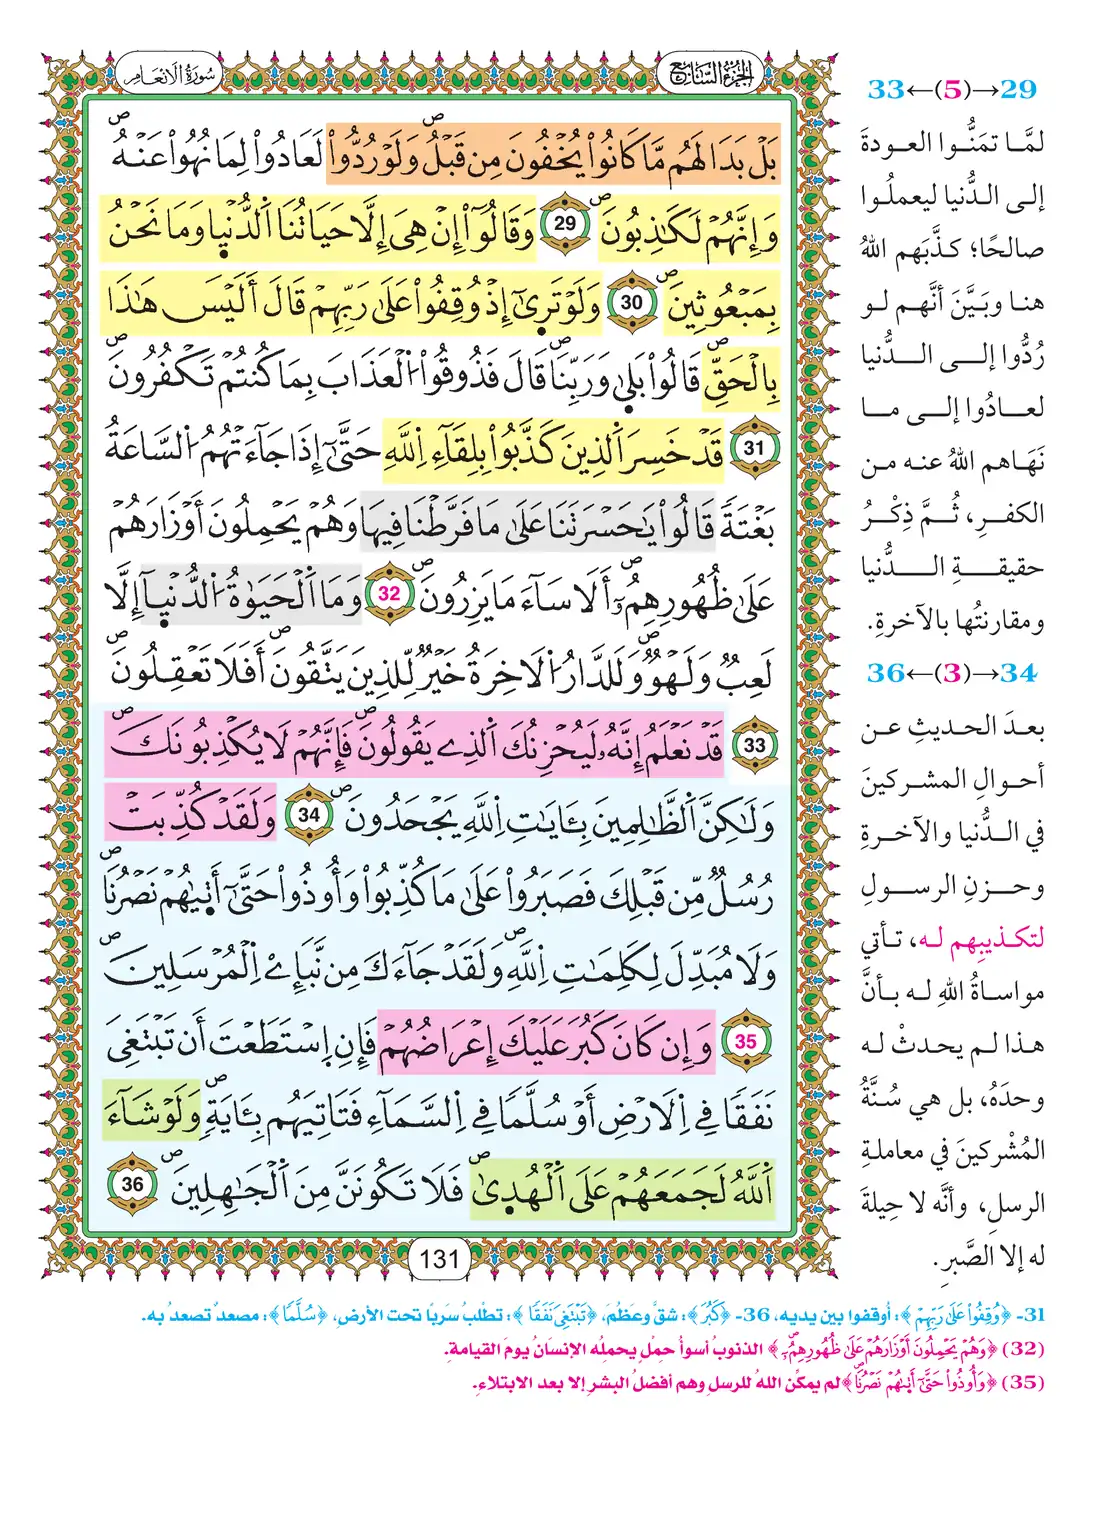 الجزء السابع
سورة الانعام
بَلْ بَدَا لَهُم مَّا كَانُواْ يُخْفُونَ مِن قَبْلُ وَلَوْ رُدُّواْ لَعَادُواْ لِمَا نُهُواْ عَنْهُ
وَإِنَّهُمْ لَكَاذِبُونَ 29 وَقَالُواْ إِنْ هِيَ إِلَّا حَيَاتُنَا اَلدُّنْيا وَمَا نَحْنُ
بِمَبْعُوثِينَ 30 وَلَوْ تَرىٰ إِذْ وُقِفُواْ عَلَىٰ رَبِّهِمْ قَالَ أَلَيْسَ هَٰذَا
بِالْحَقِّ قَالُواْ بَلىٰ وَرَبِّنَا قَالَ فَذُوقُواْ اُلْعَذَابَ بِمَا كُنتُمْ تَكْفُرُونَ
31 قَدْ خَسِرَ اَلذِينَ كَذَّبُواْ بِلِقَآءِ اِللَّهِ حَتَّىٰٓ إِذَا جَآءَتْهُمُ اُلسَّاعَةُ
بَغْتَةً قَالُواْ يَٰحَسْرَتَنَا عَلَىٰ مَا فَرَّطْنَا فِيهَا وَهُمْ يَحْمِلُونَ أَوْزَارَهُمْ
عَلَىٰ ظُهُورِهِمُۥٓ أَلَا سَآءَ مَا يَزِرُونَ 32 وَمَا اَلْحَيَوٰةُ اُلدُّنْيآ إِلَّا
لَعِبٌ وَلَهْوٌ وَلَلدَّارُ اُلَاخِرَةُ خَيْرٌ لِّلذِينَ يَتَّقُونَ أَفَلَا تَعْقِلُونَ
33 قَدْ نَعْلَمُ إِنَّهُۥ لَيُحْزِنُكَ اَلذِي يَقُولُونَ فَإِنَّهُمْ لَا يُكْذِبُونَكَ
وَلَٰكِنَّ اَلظَّٰلِمِينَ بِـَٔايَٰتِ اِللَّهِ يَجْحَدُونَ 34 وَلَقَدْ كُذِّبَتْ
رُسُلٌ مِّن قَبْلِكَ فَصَبَرُواْ عَلَىٰ مَا كُذِّبُواْ وَأُوذُواْ حَتَّىٰٓ أَتٜىٰهُمْ نَصْرُنَا
وَلَا مُبَدِّلَ لِكَلِمَٰتِ اِللَّهِ وَلَقَدْ جَآءَكَ مِن نَّبَإِےْ اِلْمُرْسَلِينَ
35 وَإِن كَانَ كَبُرَ عَلَيْكَ إِعْرَاضُهُمْ فَإِنِ اِسْتَطَعْتَ أَن تَبْتَغِيَ
نَفَقًا فِي اِلَارْضِ أَوْ سُلَّمًا فِي اِلسَّمَآءِ فَتَاتِيَهُم بِـَٔايَةٍ وَلَوْ شَآءَ
اَللَّهُ لَجَمَعَهُمْ عَلَى اَلْهُدىٰ فَلَا تَكُونَنَّ مِنَ اَلْجَٰهِلِينَ 36
131
29→(5)←33
لمَّا تمَنُّوا العودةَ
إلى الدُّنيا ليعملُوا
صالحًا؛ كذَّبَهم اللهُ
هنا وبَيَّنَ أنَّهم لو
رُدُّوا إلى الدُّنيا
لعادُوا إلى ما
نَهَاهم اللهُ عنه من
الكفرِ، ثُمَّ ذِكْرُ
حقيقةِ الدُّنيا
ومقارنتُها بالآخرةِ.
34→(3)←36
بعدَ الحديثِ عن
أحوالِ المشركينَ
في الدُّنيا والآخرةِ
وحزنِ الرسولِ
لتكذيبِهم له، تأتي
مواساةُ اللهِ له بأنَّ
هذا لم يحدثْ له
وحدَهُ، بل هي سُنَّةُ
المُشْركينَ في معاملةِ
الرسلِ، وأنَّه لا حِيلةَ
له إلا الصَّبرِ.
31- ﴿وُقِفُواْ عَلَىٰ رَبِّهِمْ﴾: أُوقفوا بين يديه، 36- ﴿كَبُرَ﴾: شقَّ وعظُمَ، ﴿تَبْتَغِيَ نَفَقًا﴾: تطلُبَ سَرَبًا تحت الأرضِ، ﴿سُلَّمًا﴾: مصعدًا تصعدُ به.
(32) ﴿وَهُمْ يَحْمِلُونَ أَوْزَارَهُمْ عَلَىٰ ظُهُورِهِمُۥٓ﴾ الذنوبُ أسوأُ حِمْلٍ يحملُه الإنسانُ يومَ القيامةِ.
(35) ﴿وَأُوذُواْ حَتَّىٰٓ أَتٜىٰهُمْ نَصْرُنَا﴾ لم يمكِّن اللهُ للرسلِ وهم أفضلُ البشرِ إلا بعد الابتلاءِ.